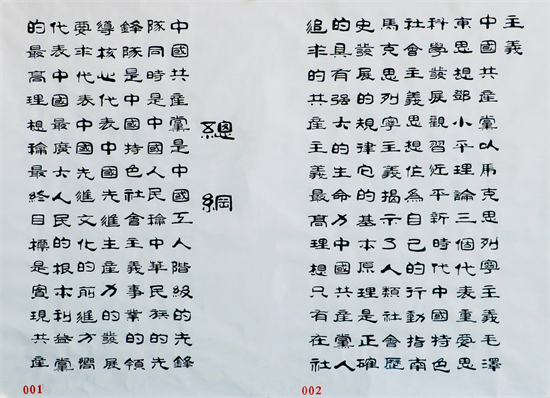 總綱
中國共產黨是中國工人階級的先鋒
隊同時是中國人民和中華民族的先
鋒隊是中國特色社會主義事業的領
導核心代表中國先進生產力的發展
要求代表中國先進文化的前進方嚮
代表中國最廣大人民的根本利益黨
的最高理想和最終目標是實現共產
001
主義
中國共產黨以馬克思列寧主義毛澤
東思想鄧小平理論三個代表重要思
科學發展觀習近平新時代中國特色
社會主義思想作為自己的行動指南
馬克思列寧主義揭示了人類社會歷
史發展的規律它的基本原理是正確
的具有强大的生命力中國共產黨人
追求的共產主義最高理想只有在社
002